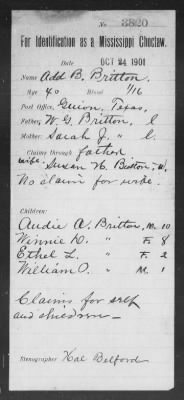 No. 3820
For Identification as a Mississippi Choctaw.
Date OCT 24 1901
Name Add B. Britton.
Age 40 Blood 1/16
Post Office, Guion, Texas,
Father, W. G. Britton, l
Mother Sarah J. " l.
Claims through father
wife: Susan N. Britton, w.
No claim for wife.
Children:
Audie A. Britton, M. 10
Winnie D. " F. 8
Ethel L. " F. 2
William O. " M. 1
Claims for self
and children —
Stenographer Hal Belford